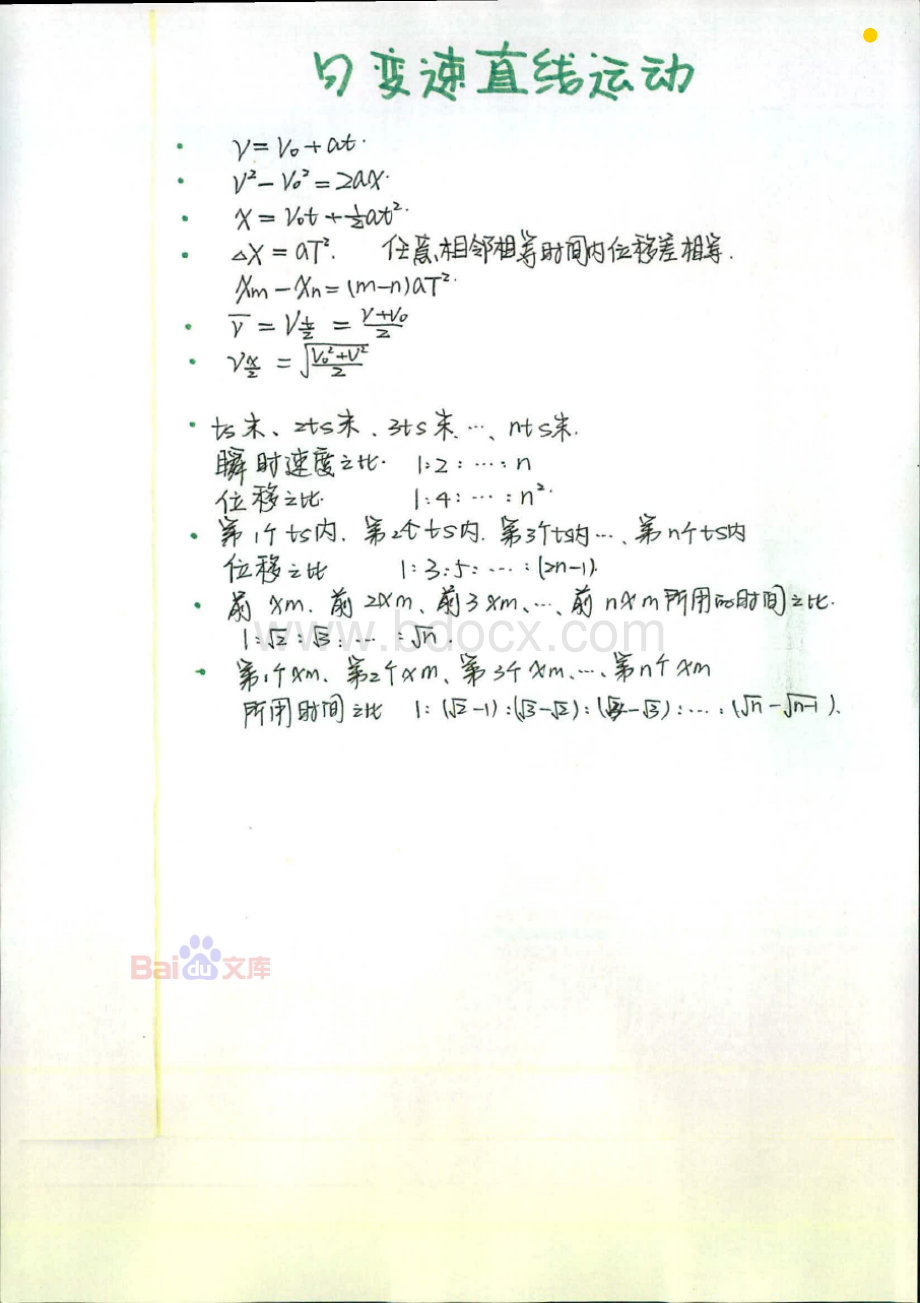 匀变速直线运动
· v=v₀+at.
· v²-v₀²=2ax.
· x=v₀t+½at².
· △x=aT². 任意相邻相等时间内位移差相等.
xm-xn=(m-n)aT².
· v̅=v_{t/2}=(v+v₀)/2
· v_{x/2}=√((v₀²+v²)/2)
· ts末、2ts末、3ts末、…、nts末.
瞬时速度之比. 1:2:…:n
位移之比. 1:4:…:n².
· 第1个ts内、第2个ts内、第3个ts内…、第n个ts内
位移之比 1:3:5:…:(2n-1).
· 前xm、前2xm、前3xm、…、前nxm所用的时间之比.
1:√2:√3:…:√n.
www.bdocx.com
· 第1个xm、第2个xm、第3个xm、…、第n个xm
所用时间之比 1:(√2-1):(√3-√2):(-√3):…:(√n-√n-1).
Bai du 文库